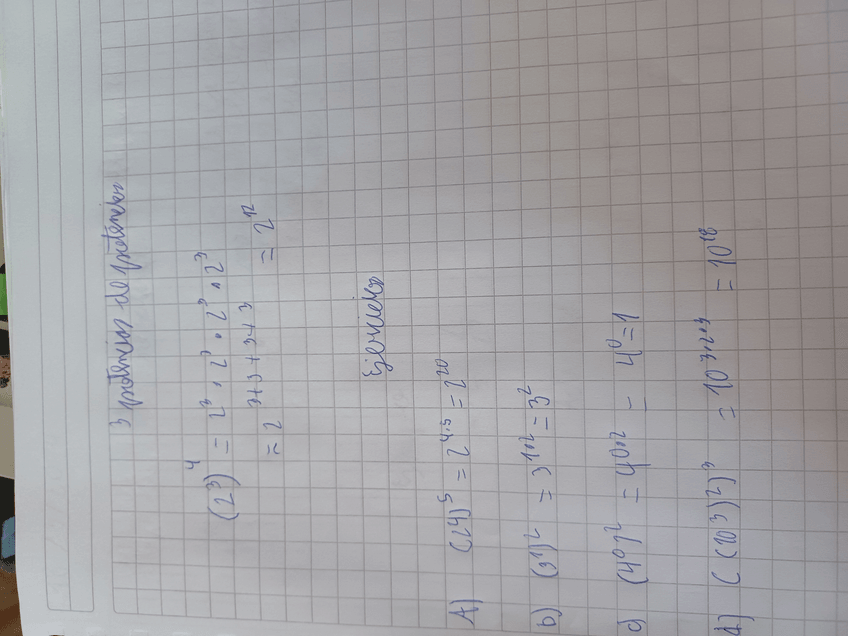 3 potencias de potencias
(2³)⁴ = 2³ · 2³ · 2³ · 2³
= 2³⁺³⁺³⁺³ = 2¹²
Ejercicios
A) (24)⁵ = 2⁴·⁵ = 2²⁰
b) (3¹)² = 3¹·² = 3²
c) (4⁰)² = 4⁰·² = 4⁰ = 1
d) ((10³)²)³ = 10³·²·³ = 10¹⁸